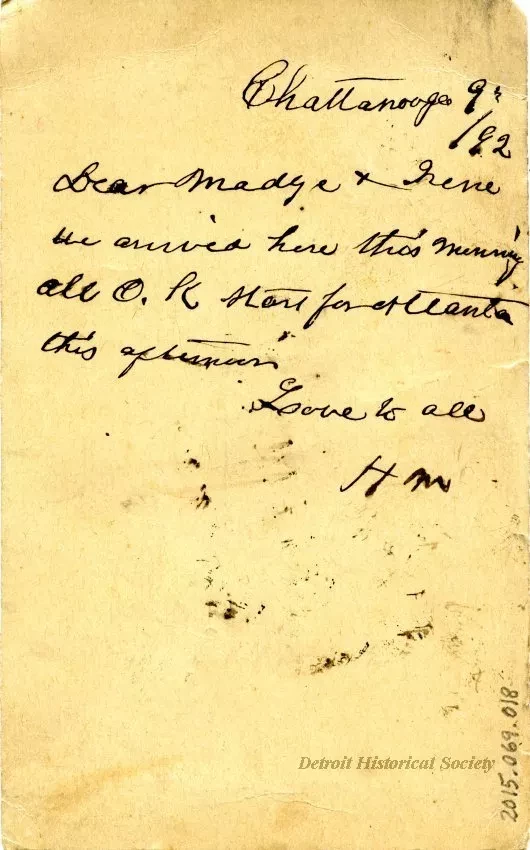 Chattanooga 9th
/92
Dear Madge & Irene
We arrived here this morning
all O. K start for Atlanta
this afternoon
Love to all
H M
Detroit Historical Society
2015.069.018